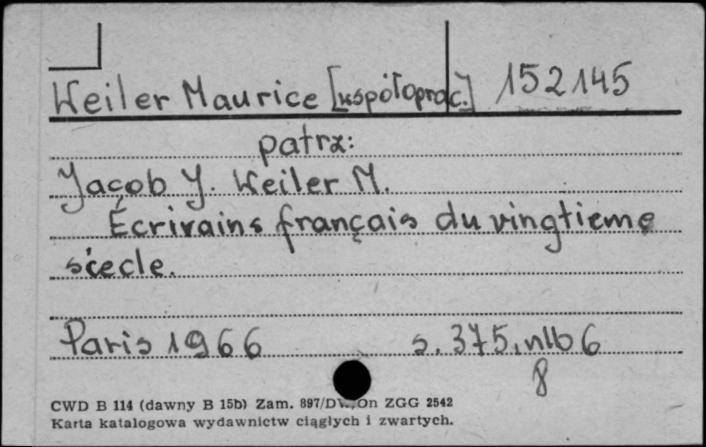 Weiler Maurice [współoprac.] 152145
patrz:
Jaçob J. Weiler M.
Écrivains français du vingtieme
siecle.
Paris 1966 s. 375, nlb 6
8
CWD B 114 (dawny B 15b) Zam. 897/DW/On ZGG 2542
Karta katalogowa wydawnictw ciągłych i zwartych.